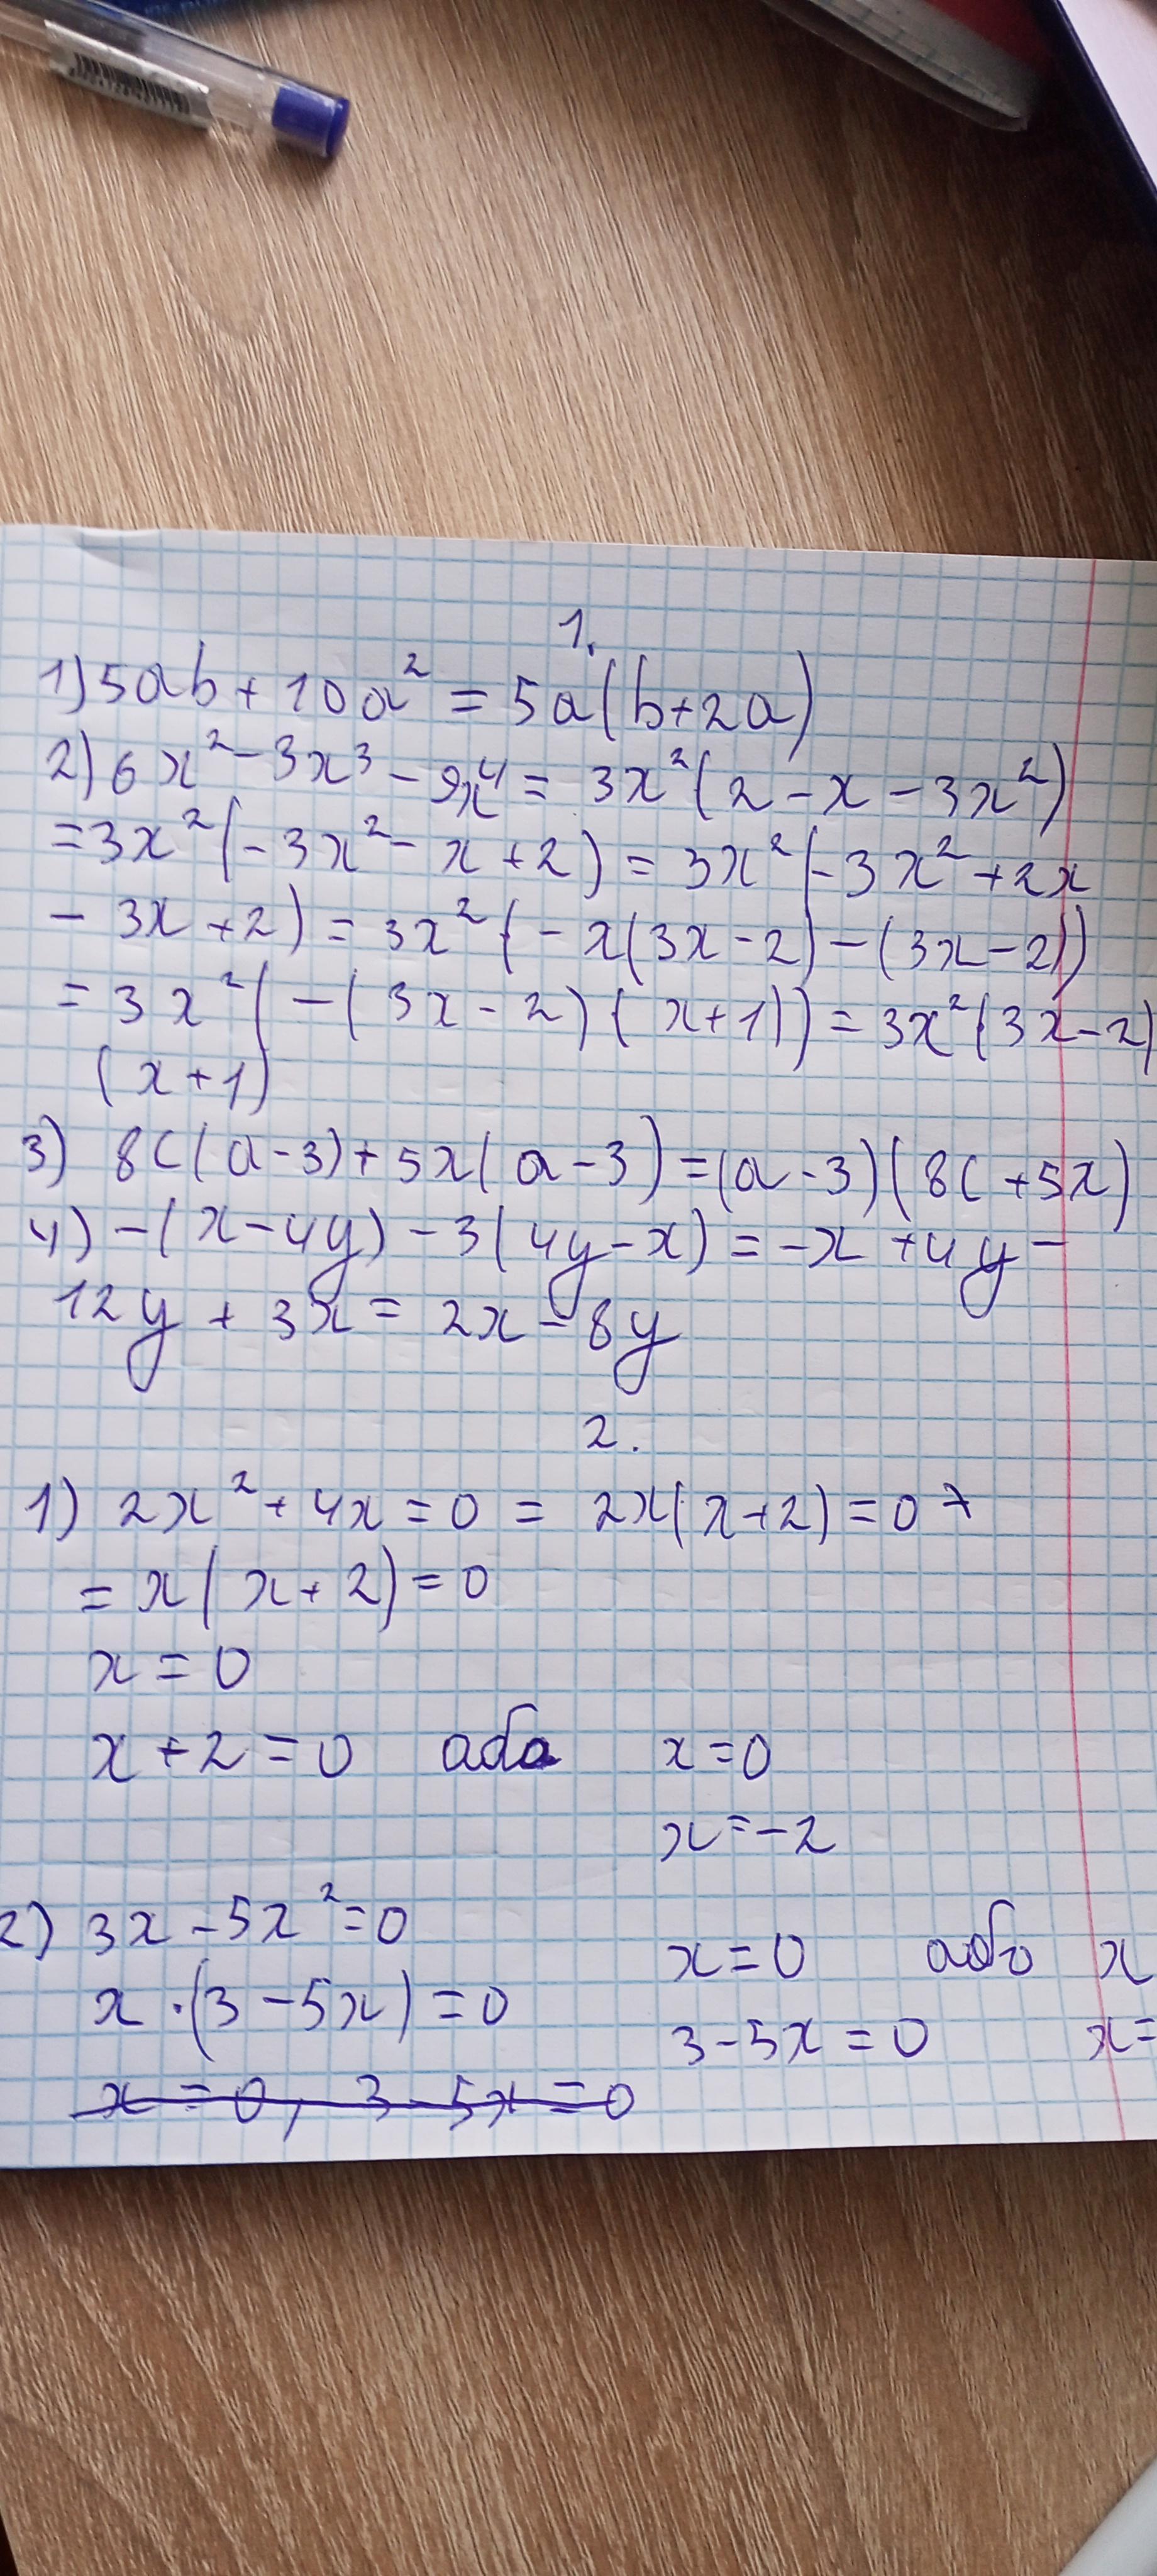 1.
1) 5ab + 10a² = 5a(b+2a)
2) 6x² - 3x³ - 9x⁴ = 3x²(2 - x - 3x²)
= 3x²(-3x² - x + 2) = 3x²(-3x² + 2x
- 3x + 2) = 3x²(-x(3x - 2) - (3x - 2))
= 3x²(-(3x - 2)(x+1)) = 3x²(3x - 2)
(x + 1)
3) 8c(a - 3) + 5x(a - 3) = (a - 3)(8c + 5x)
4) -(x - 4y) - 3(4y - x) = -x + 4y -
12y + 3x = 2x - 8y
2.
1) 2x² + 4x = 0 = 2x(x+2) = 0
= x(x + 2) = 0
x = 0
x + 2 = 0 або x = 0
x = -2
2) 3x - 5x² = 0
x = 0 або x
x · (3 - 5x) = 0
3 - 5x = 0 x =
x = 0, 3 - 5x = 0